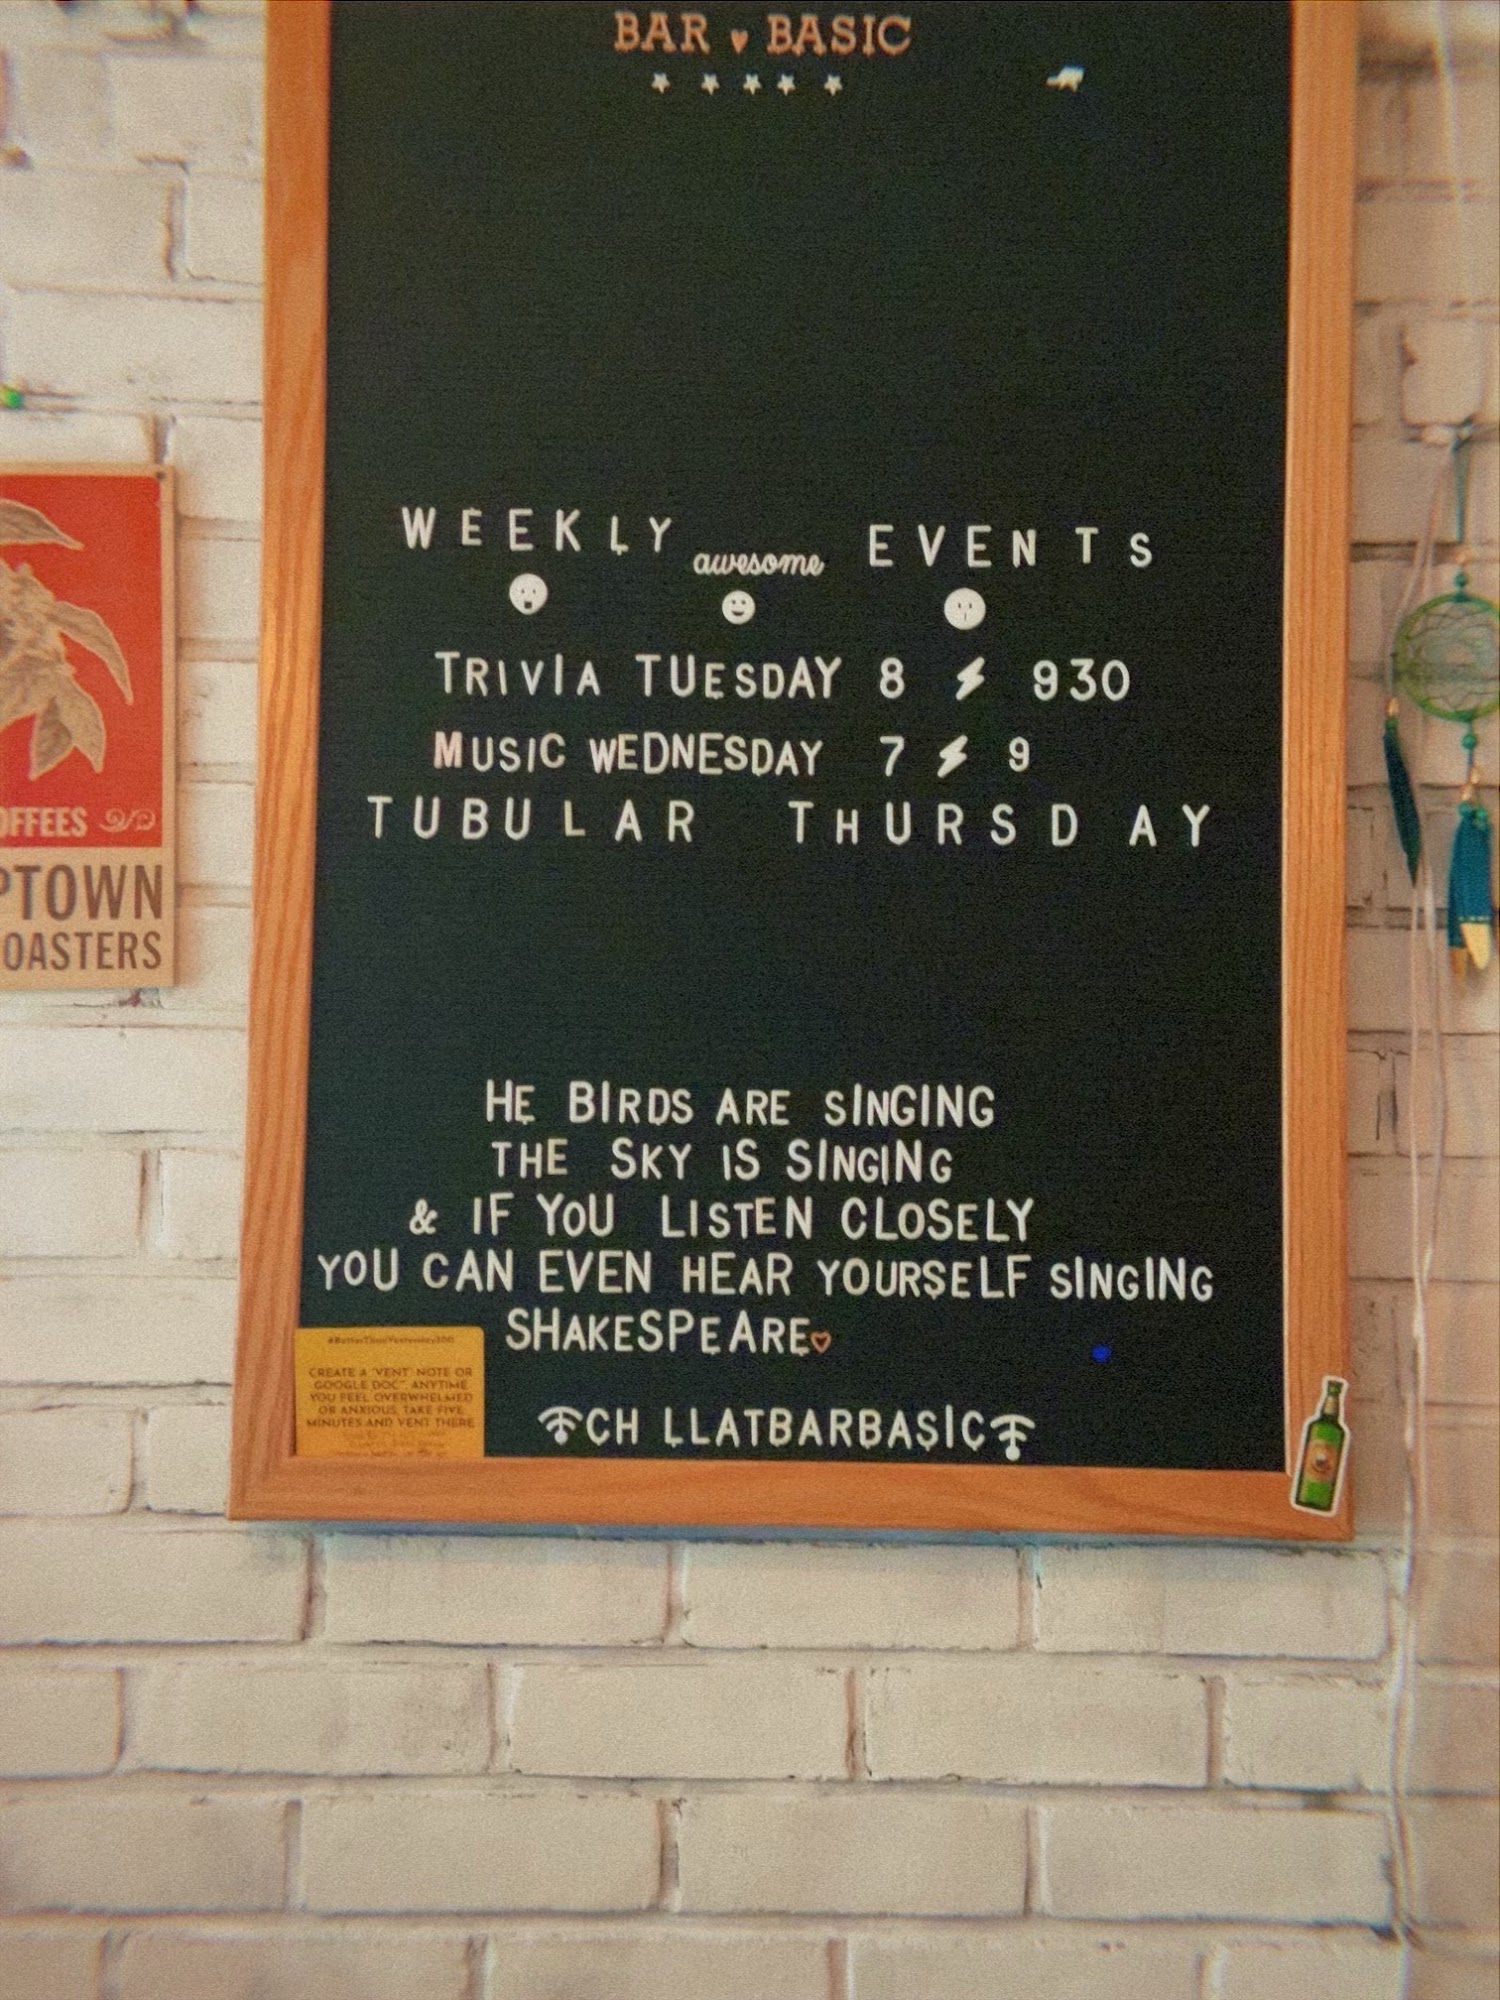 BAR ♥ BASIC
WEEKLY awesome EVENTS
TRIVIA TUESDAY 8 ⚡ 930
MUSIC WEDNESDAY 7 ⚡ 9
TUBULAR THURSDAY
HE BIRDS ARE SINGING
THE SKY IS SINGING
& IF YOU LISTEN CLOSELY
YOU CAN EVEN HEAR YOURSELF SINGING
SHAKESPEARE♡
CH LLATBARBASIC
#BetterThanYesterday200
CREATE A "VENT" NOTE OR
GOOGLE DOC". ANYTIME
YOU FEEL OVERWHELMED
OR ANXIOUS, TAKE FIVE
MINUTES AND VENT THERE
OFFEES
PTOWN
OASTERS